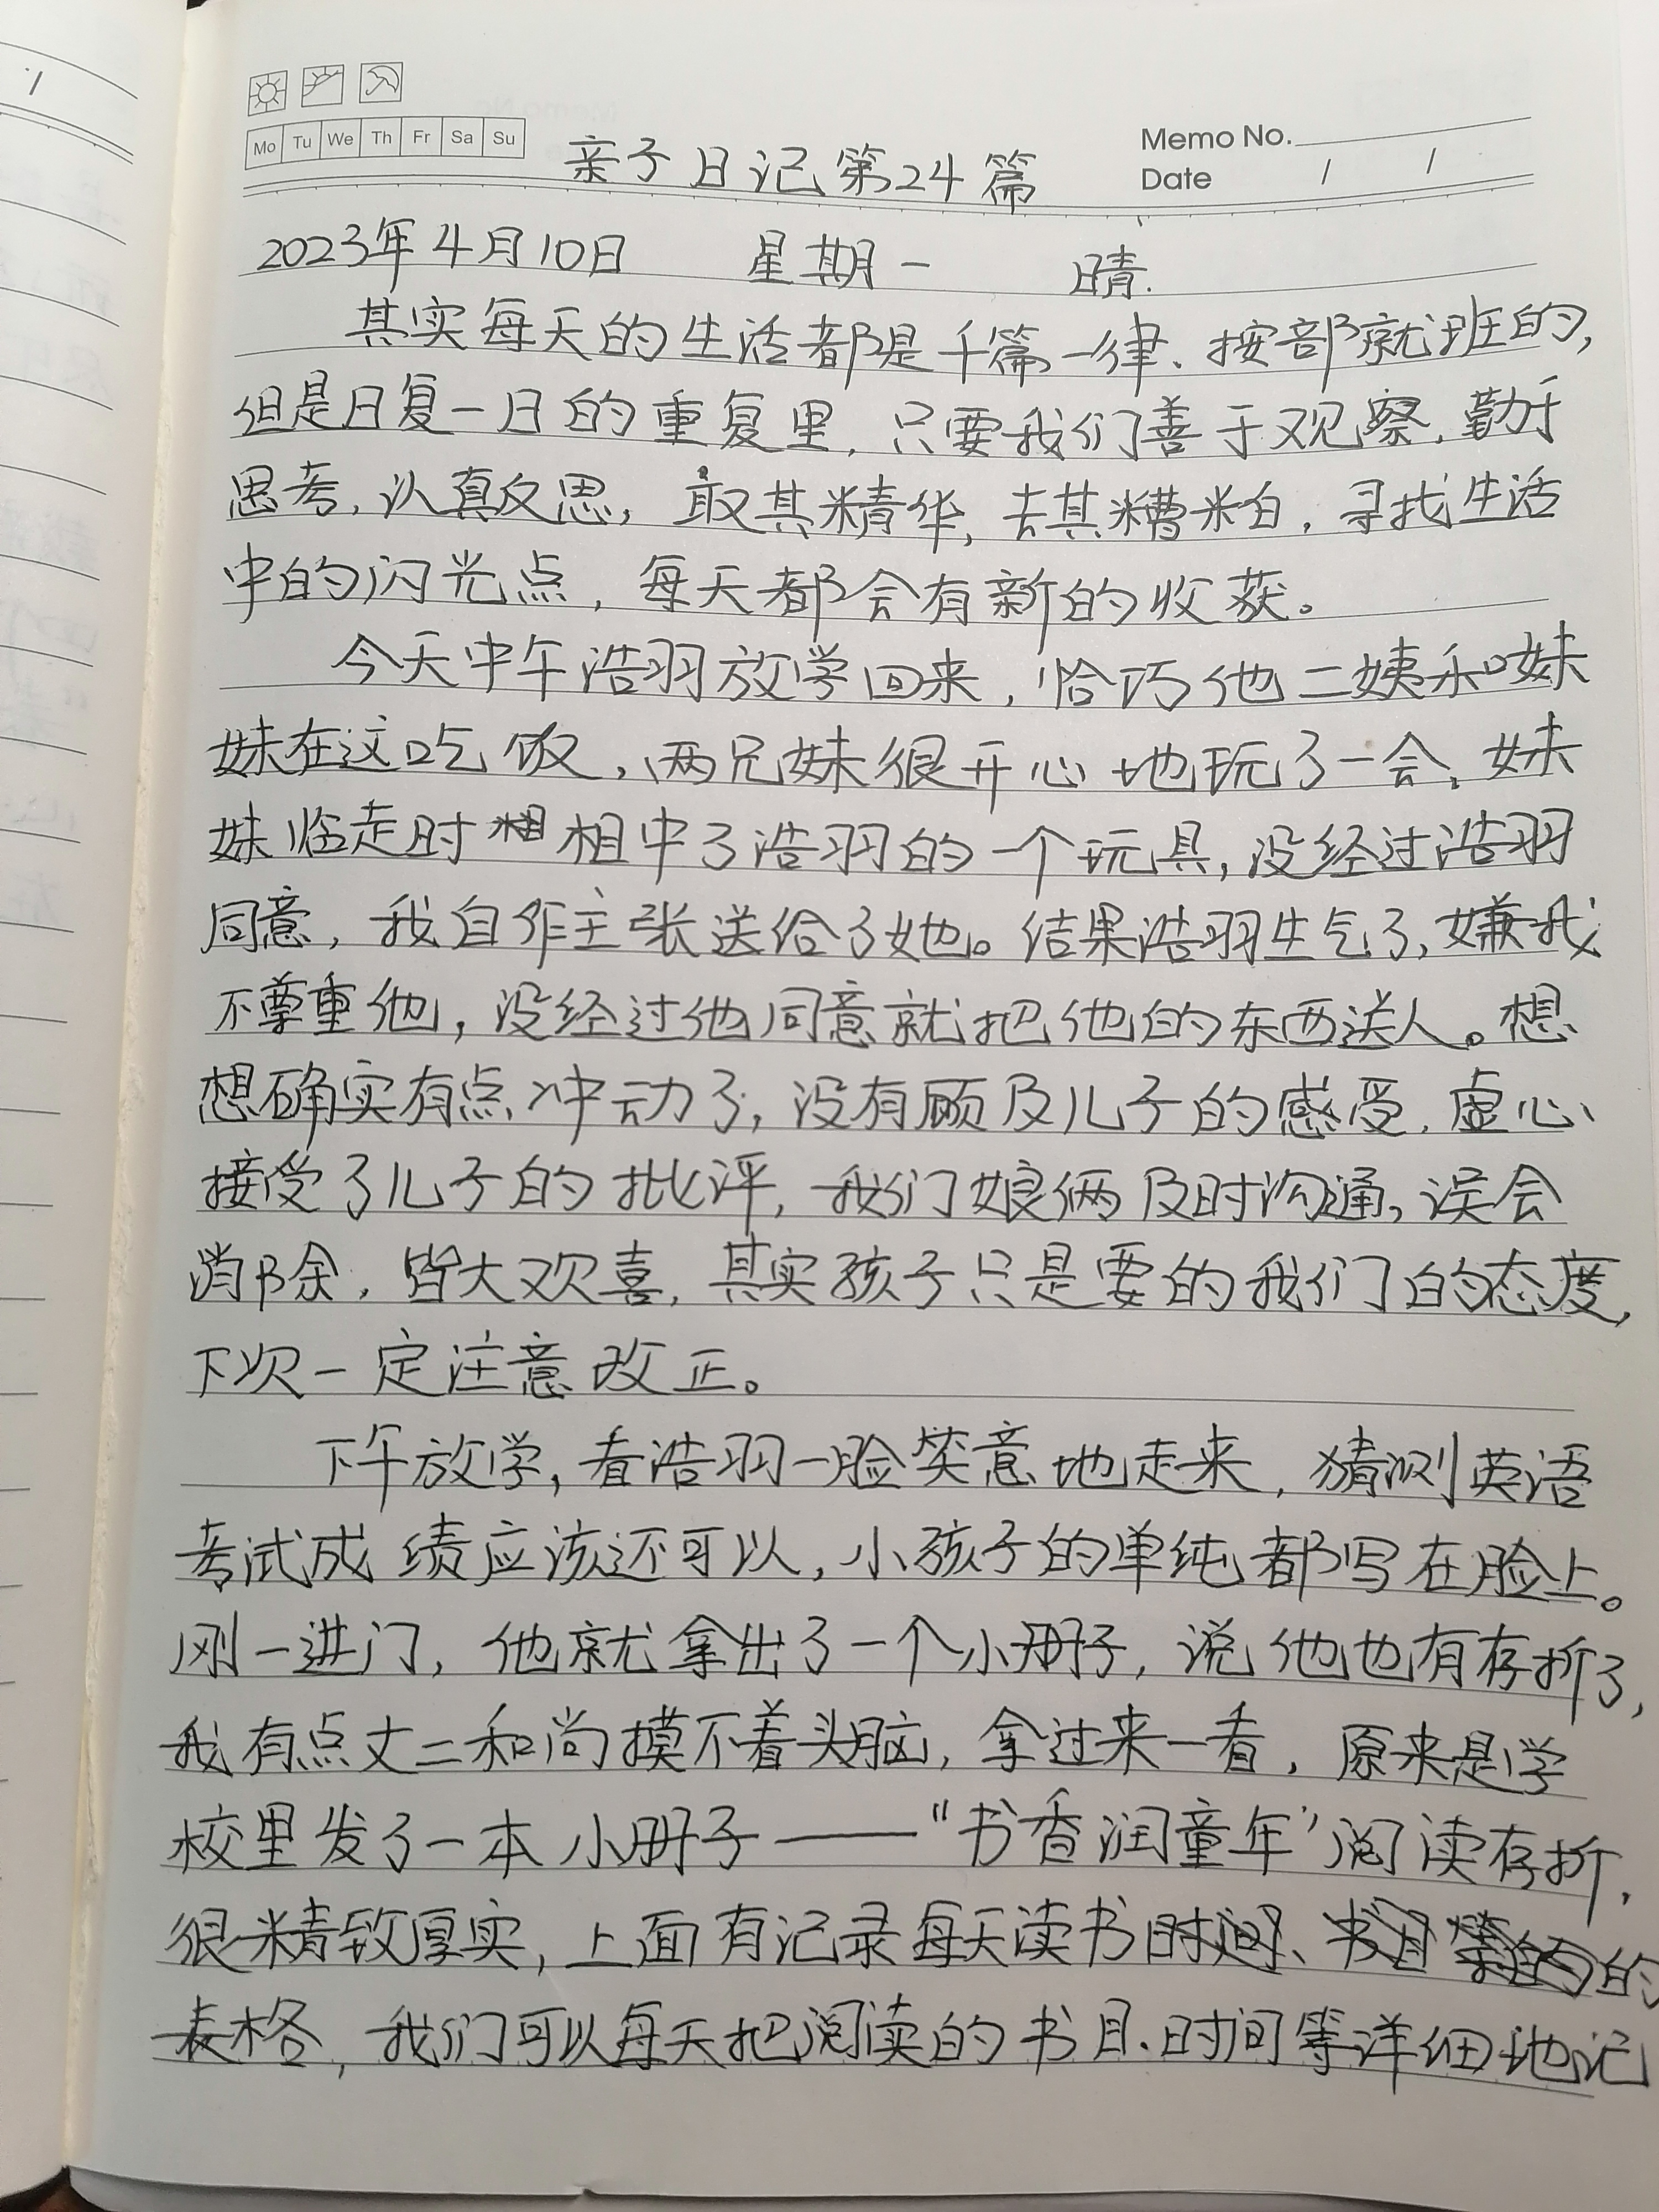 Mo Tu We Th Fr Sa Su
Memo No.
Date / /
亲子日记第24篇
2023年4月10日 星期一 晴.
其实每天的生活都是千篇一律、按部就班的,
但是日复一日的重复里,只要我们善于观察,勤于
思考,认真反思,取其精华,去其糟粕,寻找生活
中的闪光点,每天都会有新的收获。
今天中午浩羽放学回来,恰巧他二姨和妹
妹在这吃饭,两兄妹很开心地玩了一会,妹
妹临走时相中了浩羽的一个玩具,没经过浩羽
同意,我自作主张送给了她。结果浩羽生气了,嫌我
不尊重他,没经过他同意就把他的东西送人。想
想确实有点冲动了,没有顾及儿子的感受,虚心
接受了儿子的批评,我们娘俩及时沟通,误会
消除,皆大欢喜,其实孩子只是要的我们的态度,
下次一定注意改正。
下午放学,看浩羽一脸笑意地走来,猜测英语
考试成绩应该还可以,小孩子的单纯都写在脸上。
刚一进门,他就拿出了一个小册子,说他也有存折了,
我有点丈二和尚摸不着头脑,拿过来一看,原来是学
校里发了一本小册子——“书香润童年”阅读存折,
很精致厚实,上面有记录每天读书时间、书目等的
表格,我们可以每天把阅读的书目、时间等详细地记